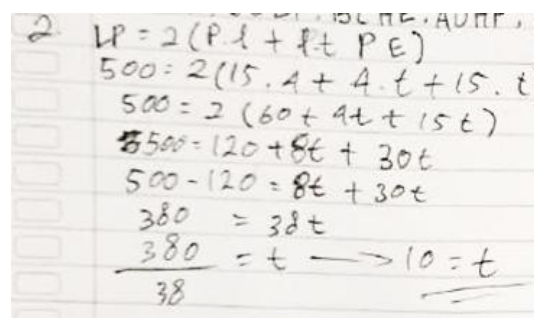 2. LP = 2(P.l + l.t PE)
500 = 2(15.4 + 4.t + 15.t
500 = 2(60 + 4t + 15t)
500 = 120 + 8t + 30t
500 - 120 = 8t + 30t
380 = 38t
380/38 = t → 10 = t